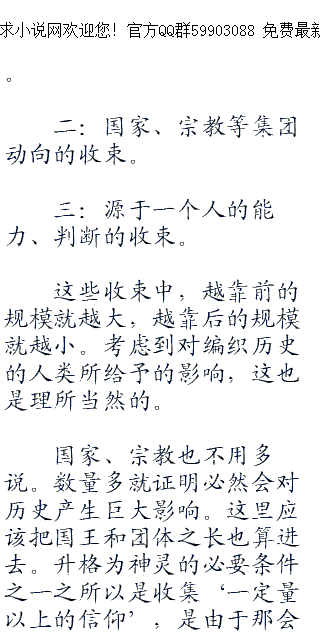 求小说网欢迎您！官方QQ群59903088 免费最新
。
二：国家、宗教等集团
动向的收束。
三：源于一个人的能
力、判断的收束。
这些收束中，越靠前的
规模就越大，越靠后的规模
就越小。考虑到对编织历史
的人类所给予的影响，这也
是理所当然的。
国家、宗教也不用多
说。数量多就证明必然会对
历史产生巨大影响。这里应
该把国王和团体之长也算进
去。升格为神灵的必要条件
之一之所以是收集‘一定量
以上的信仰’，是由于那会